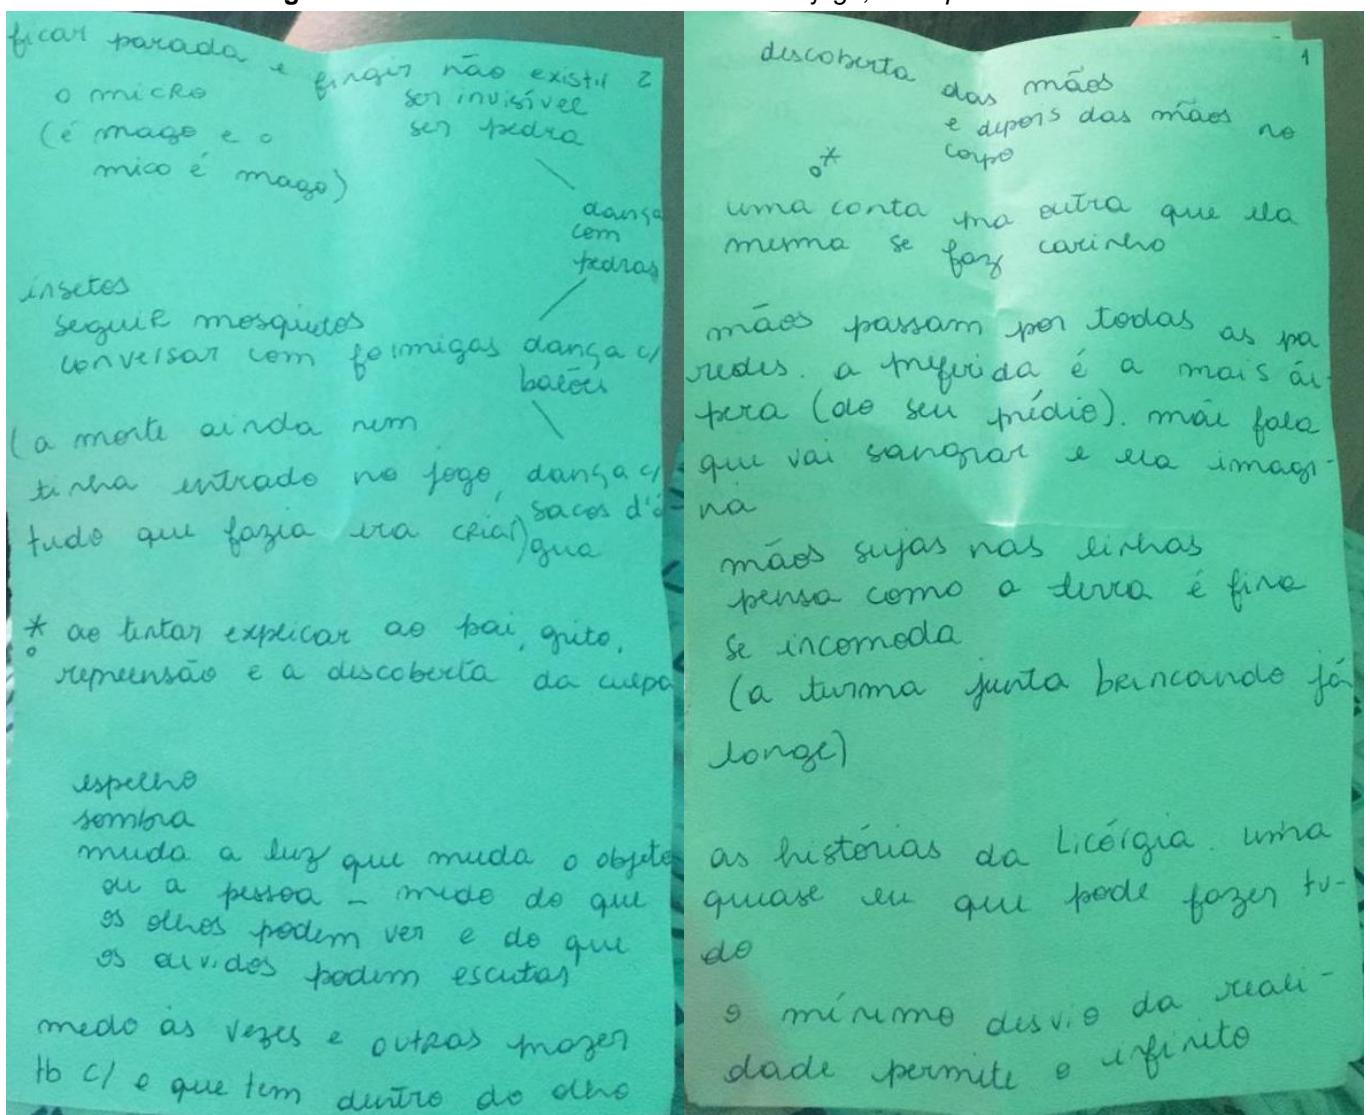 ficar parada e fingir não existir 2
o micro
(é mago e o
mico é mago)
ser invisível
ser pedra
dança
com
pedras
dança c/
balões
dança c/
sacos d'á
gua
insetos
seguir mosquitos
conversar com formigas
(a morte ainda nem
tinha entrado no jogo,
tudo que fazia era criar)
* ao tentar explicar ao pai, grito,
repreensão e a descoberta da culpa
espelho
sombra
muda a luz que muda o objeto
ou a pessoa - medo do que
os olhos podem ver e do que
os ouvidos podem escutar
medo às vezes e outras prazer
tb c/ o que tem dentro do olho
1
descoberta das mãos
e depois das mãos no
corpo
*
uma conta na outra que ela
mesma se faz carinho
mãos passam por todas as pa
redes. a preferida é a mais ás-
pera (do seu prédio). mãe fala
que vai sangrar e ela imagi-
na
mãos sujas nas linhas
pensa como a terra é fina
se incomoda
(a turma junta brincando já
longe)
as histórias da Licórgia. uma
quase eu que pode fazer tu-
do
o mínimo desvio da reali-
dade permite o infinito